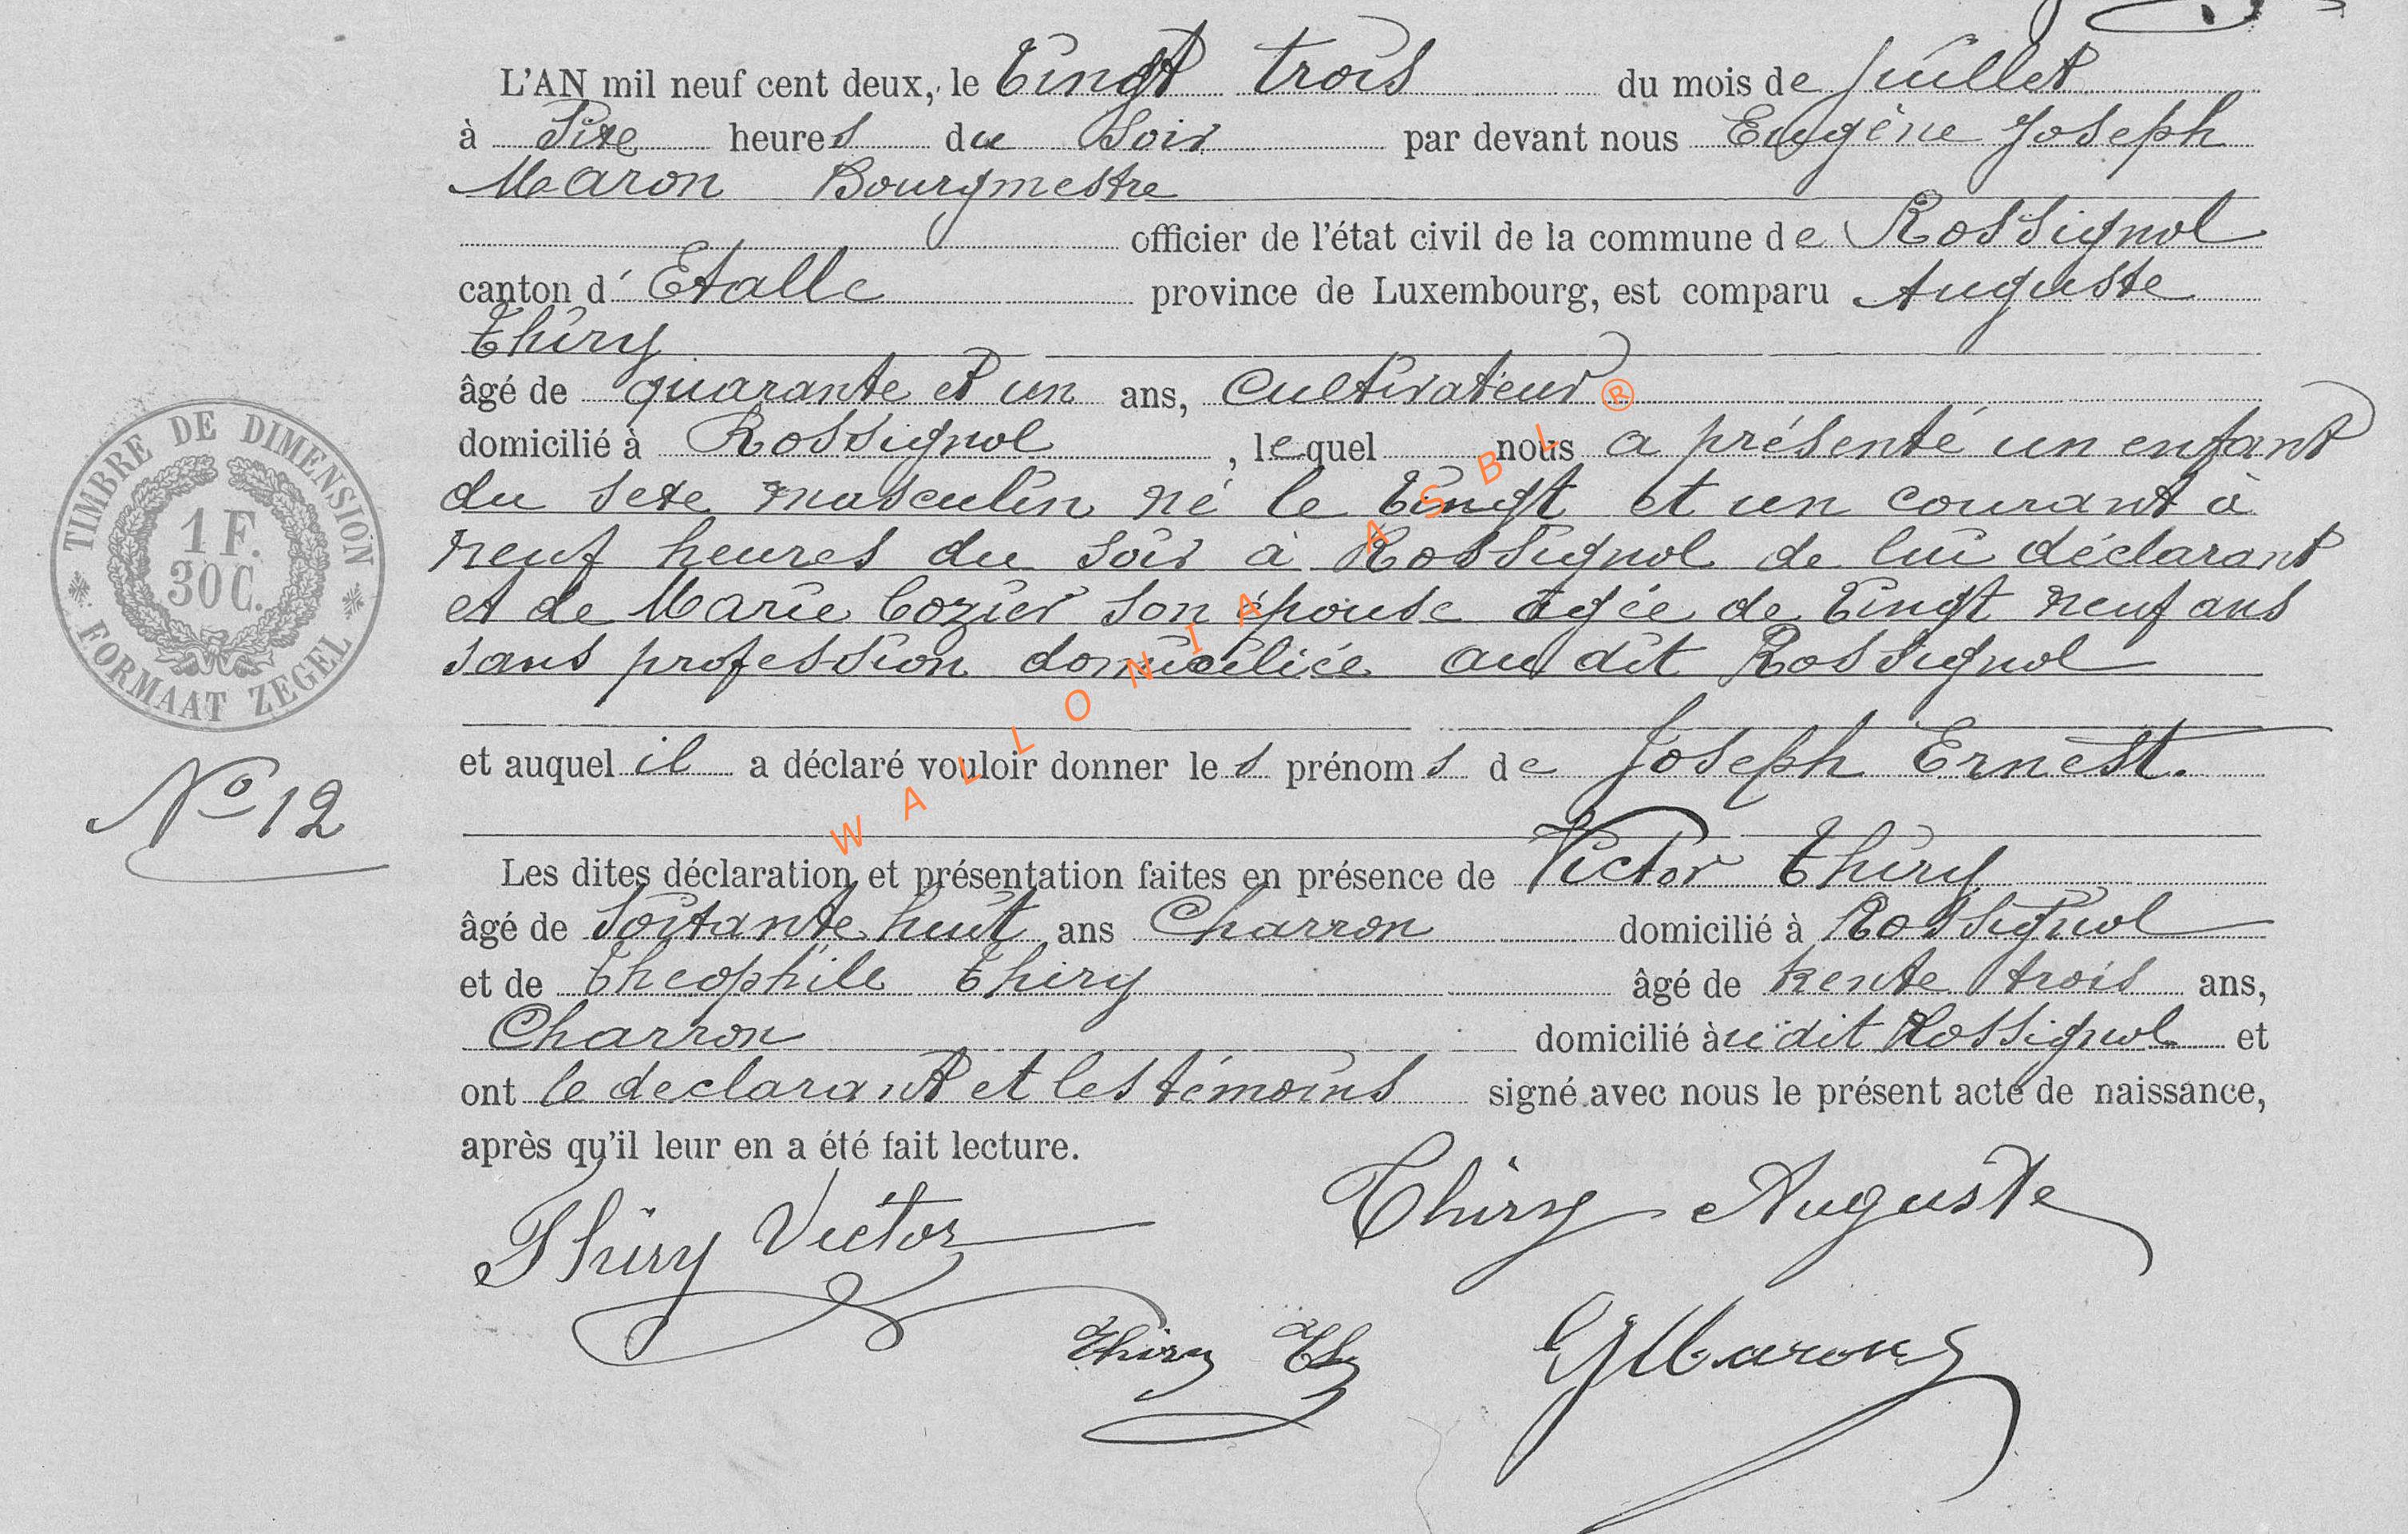 L'AN mil neuf cent deux, le Vingt trois du mois de Juillet
à Sixe heures du Soir par devant nous Eugène Joseph
Maron Bourgmestre
officier de l'état civil de la commune de Rossignol
canton d'Etalle province de Luxembourg, est comparu Auguste
Thiry
âgé de quarante et un ans, Cultivateur ®
domicilié à Rossignol, lequel nous a présenté un enfant
du sexe masculin né le Vingt et un courant à
neuf heures du soir à Rossignol de lui déclarant
et de Marie Cozier son épouse âgée de Vingt neuf ans
sans profession domiciliée au dit Rossignol
et auquel il a déclaré vouloir donner les prénoms de Joseph Ernest.
Les dites déclaration et présentation faites en présence de Victor Thiry
âgé de Soixante huit ans Charron domicilié à Rossignol
et de Théophile Thiry âgé de trente trois ans,
Charron domicilié àu dit Rossignol et
ont le declarant et les témoins signé avec nous le présent acte de naissance,
après qu'il leur en a été fait lecture.
Thiry Victor
Thiry Auguste
Thiry Th
EJMaron
TIMBRE DE DIMENSION
1 F.
30 C.
FORMAAT ZEGEL
No 12
WALLONIA ASBL